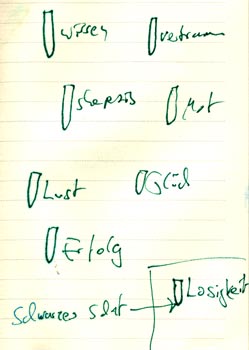 Wissen Vertrauen
Skepsis Mut
Lust Glück
Erfolg
Losigkeit
Schwarzes